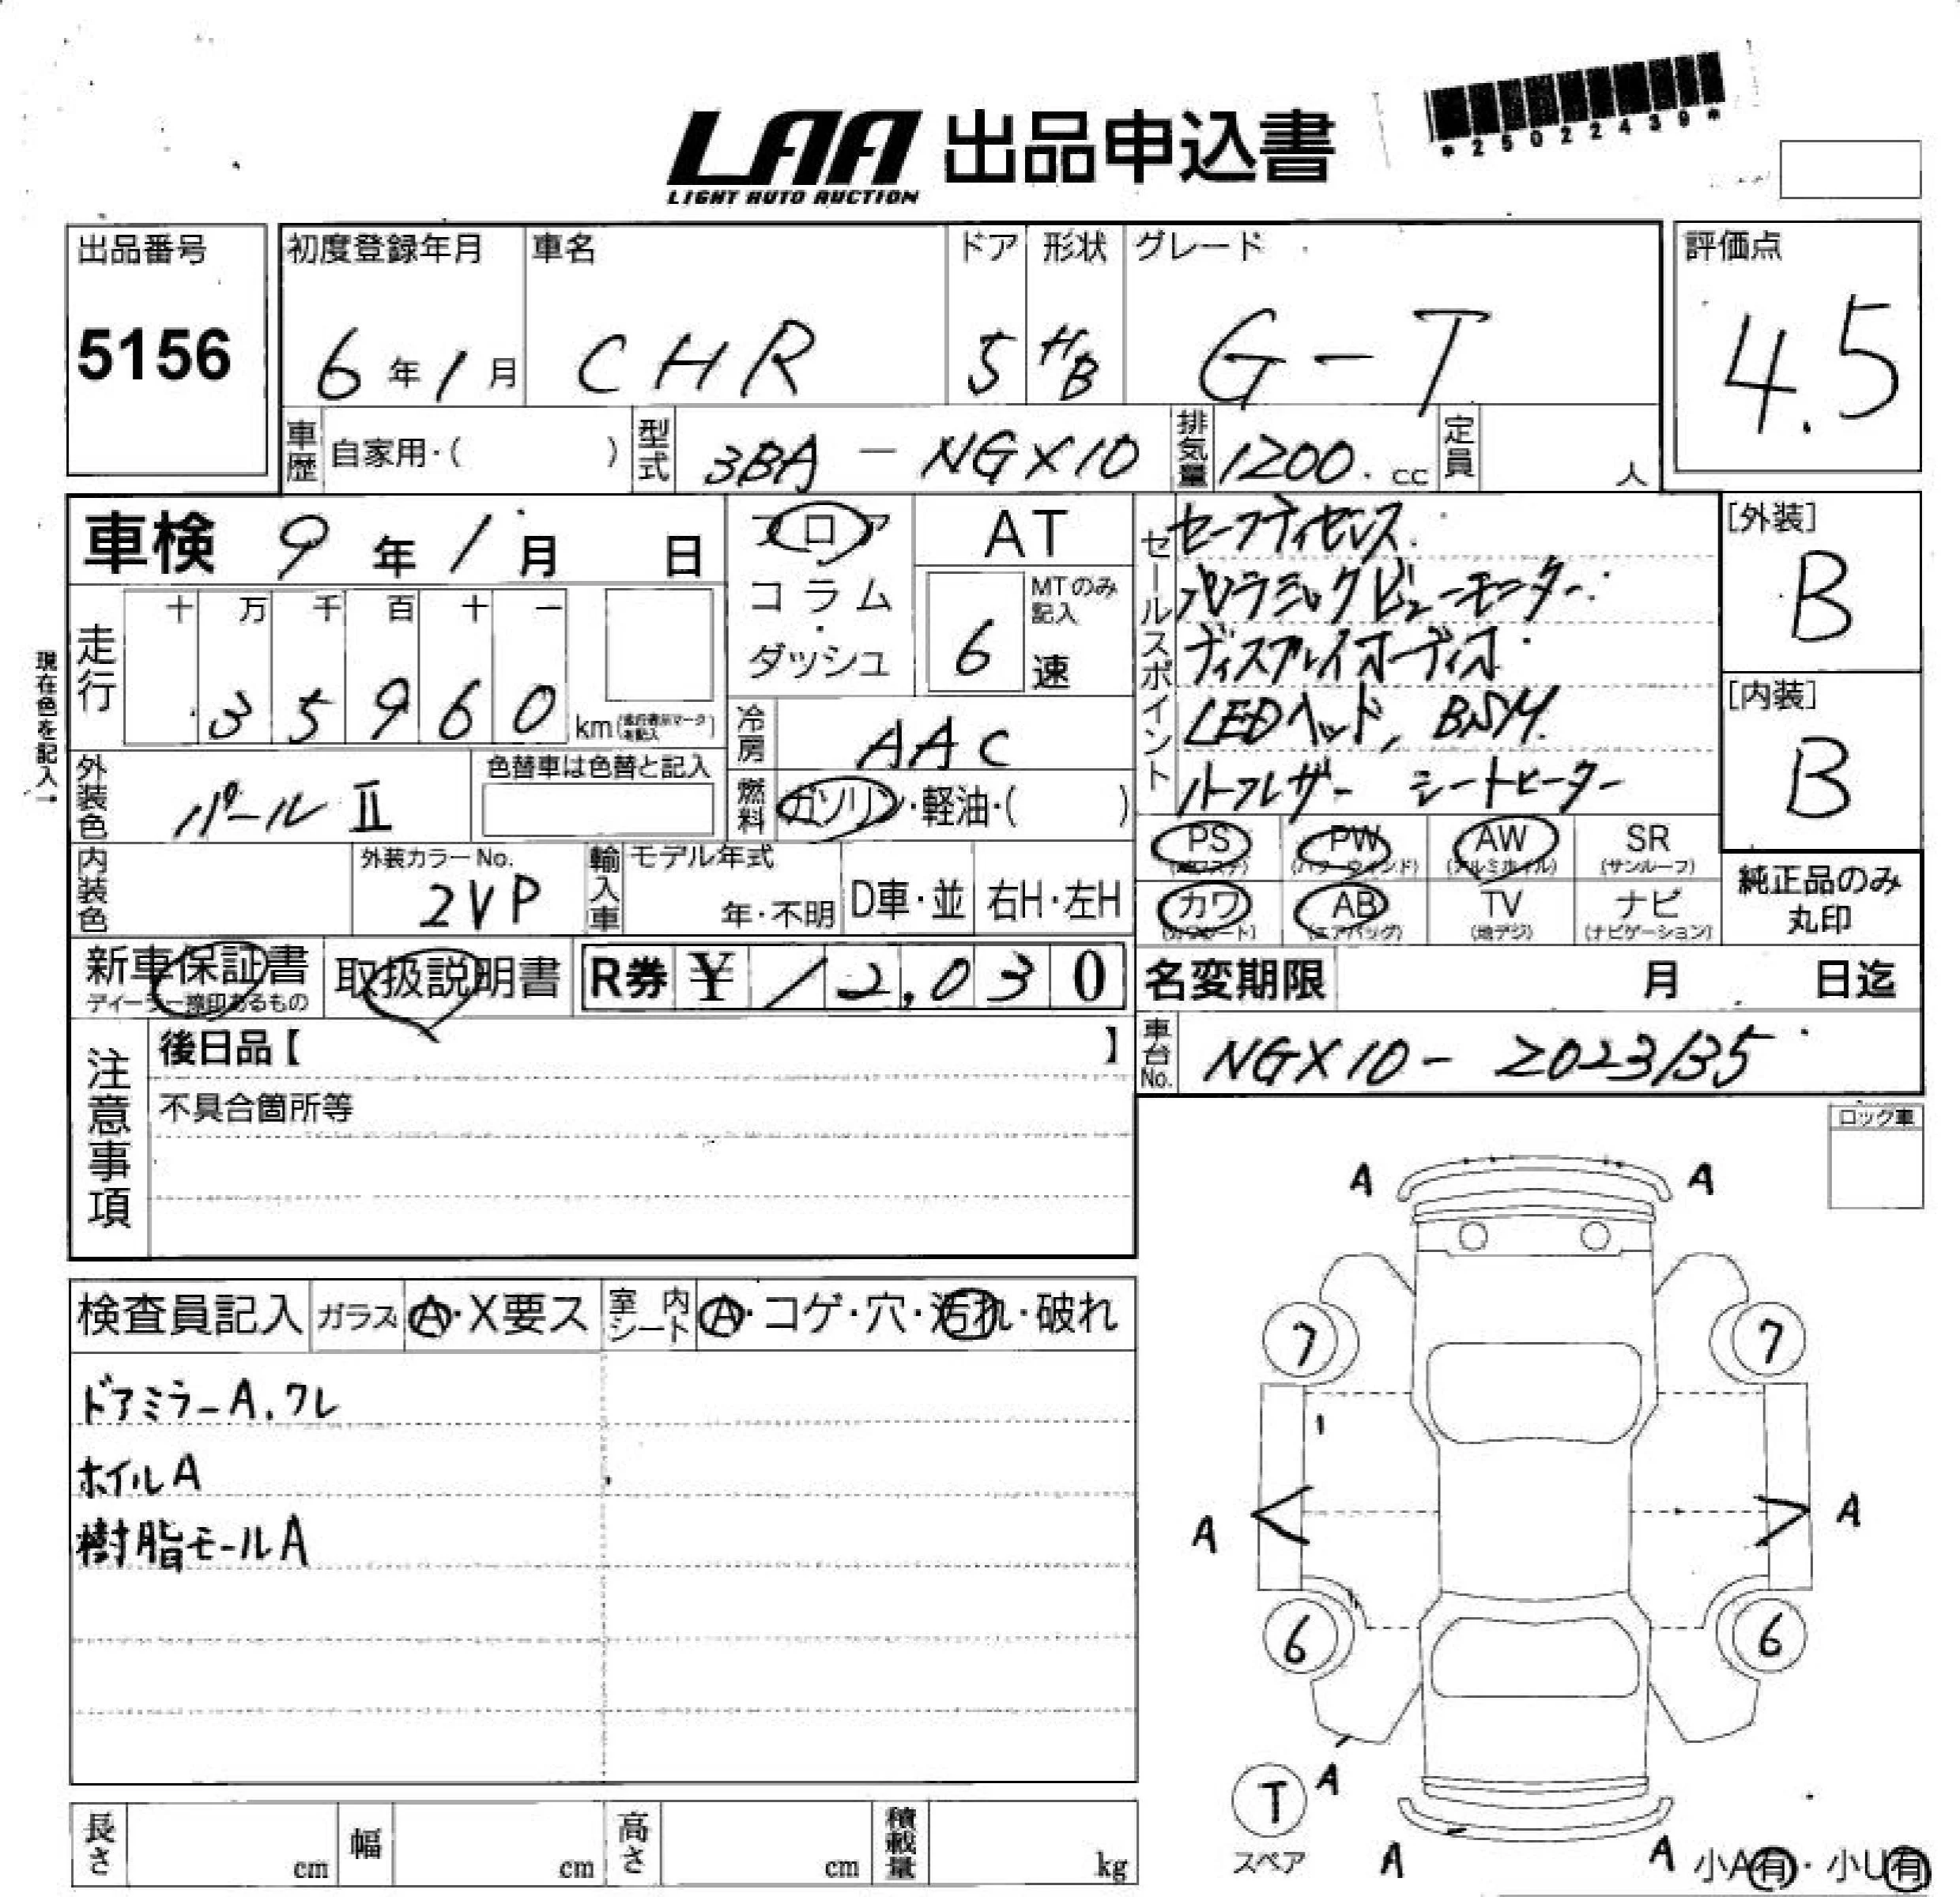 *25022439*
LAA 出品申込書
LIGHT AUTO AUCTION
出品番号
5156
初度登録年月
6年1月
車名
CHR
ドア
5
形状
HB
グレード
G-T
評価点
4.5
車歴 自家用・( )
型式 3BA-NGX10
排気量 1200.cc
定員 人
車検 9年1月 日
フロア
コラム
ダッシュ
AT
MTのみ記入
6速
現在色を記入→
走行
十 万 千 百 十 一
3 5 9 6 0 km
冷房 AAC
外装色 パールⅡ
色替車は色替と記入
燃料 ガソリン・軽油・( )
内装色
外装カラーNo.
2VP
輸入車
モデル年式
年・不明
D車・並
右H・左H
新車保証書
ディーラー捺印あるもの
取扱説明書
R券 ¥12,030
セールスポイント
セーフティセンス.
パノラミックビューモニター
ディスプレイオーディオ
LEDヘッド, BSM.
ハーフレザー シートヒーター
[外装]
B
[内装]
B
PS PW AW SR
(パワステ) (パワーウィンド) (アルミホイル) (サンルーフ)
カワ AB TV ナビ
(カワシート) (エアバッグ) (地デジ) (ナビゲーション)
純正品のみ
丸印
名変期限 月 日迄
車台No. NGX10-2023135
注意事項
後日品【 】
不具合箇所等
ロック車
検査員記入 ガラス A・X要ス 室内シート A・コゲ・穴・汚れ・破れ
ドアミラーA.ワレ
ホイルA
樹脂モールA
A A
7 7
A A
6 6
A
T
スペア
A A
小A有・小U有
長さ cm 幅 cm 高さ cm 積載量 kg